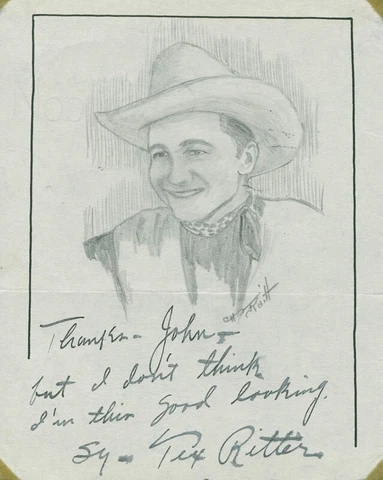 Thanks - John -
but I don't think
I'm this good looking.
Sy - Tex Ritter